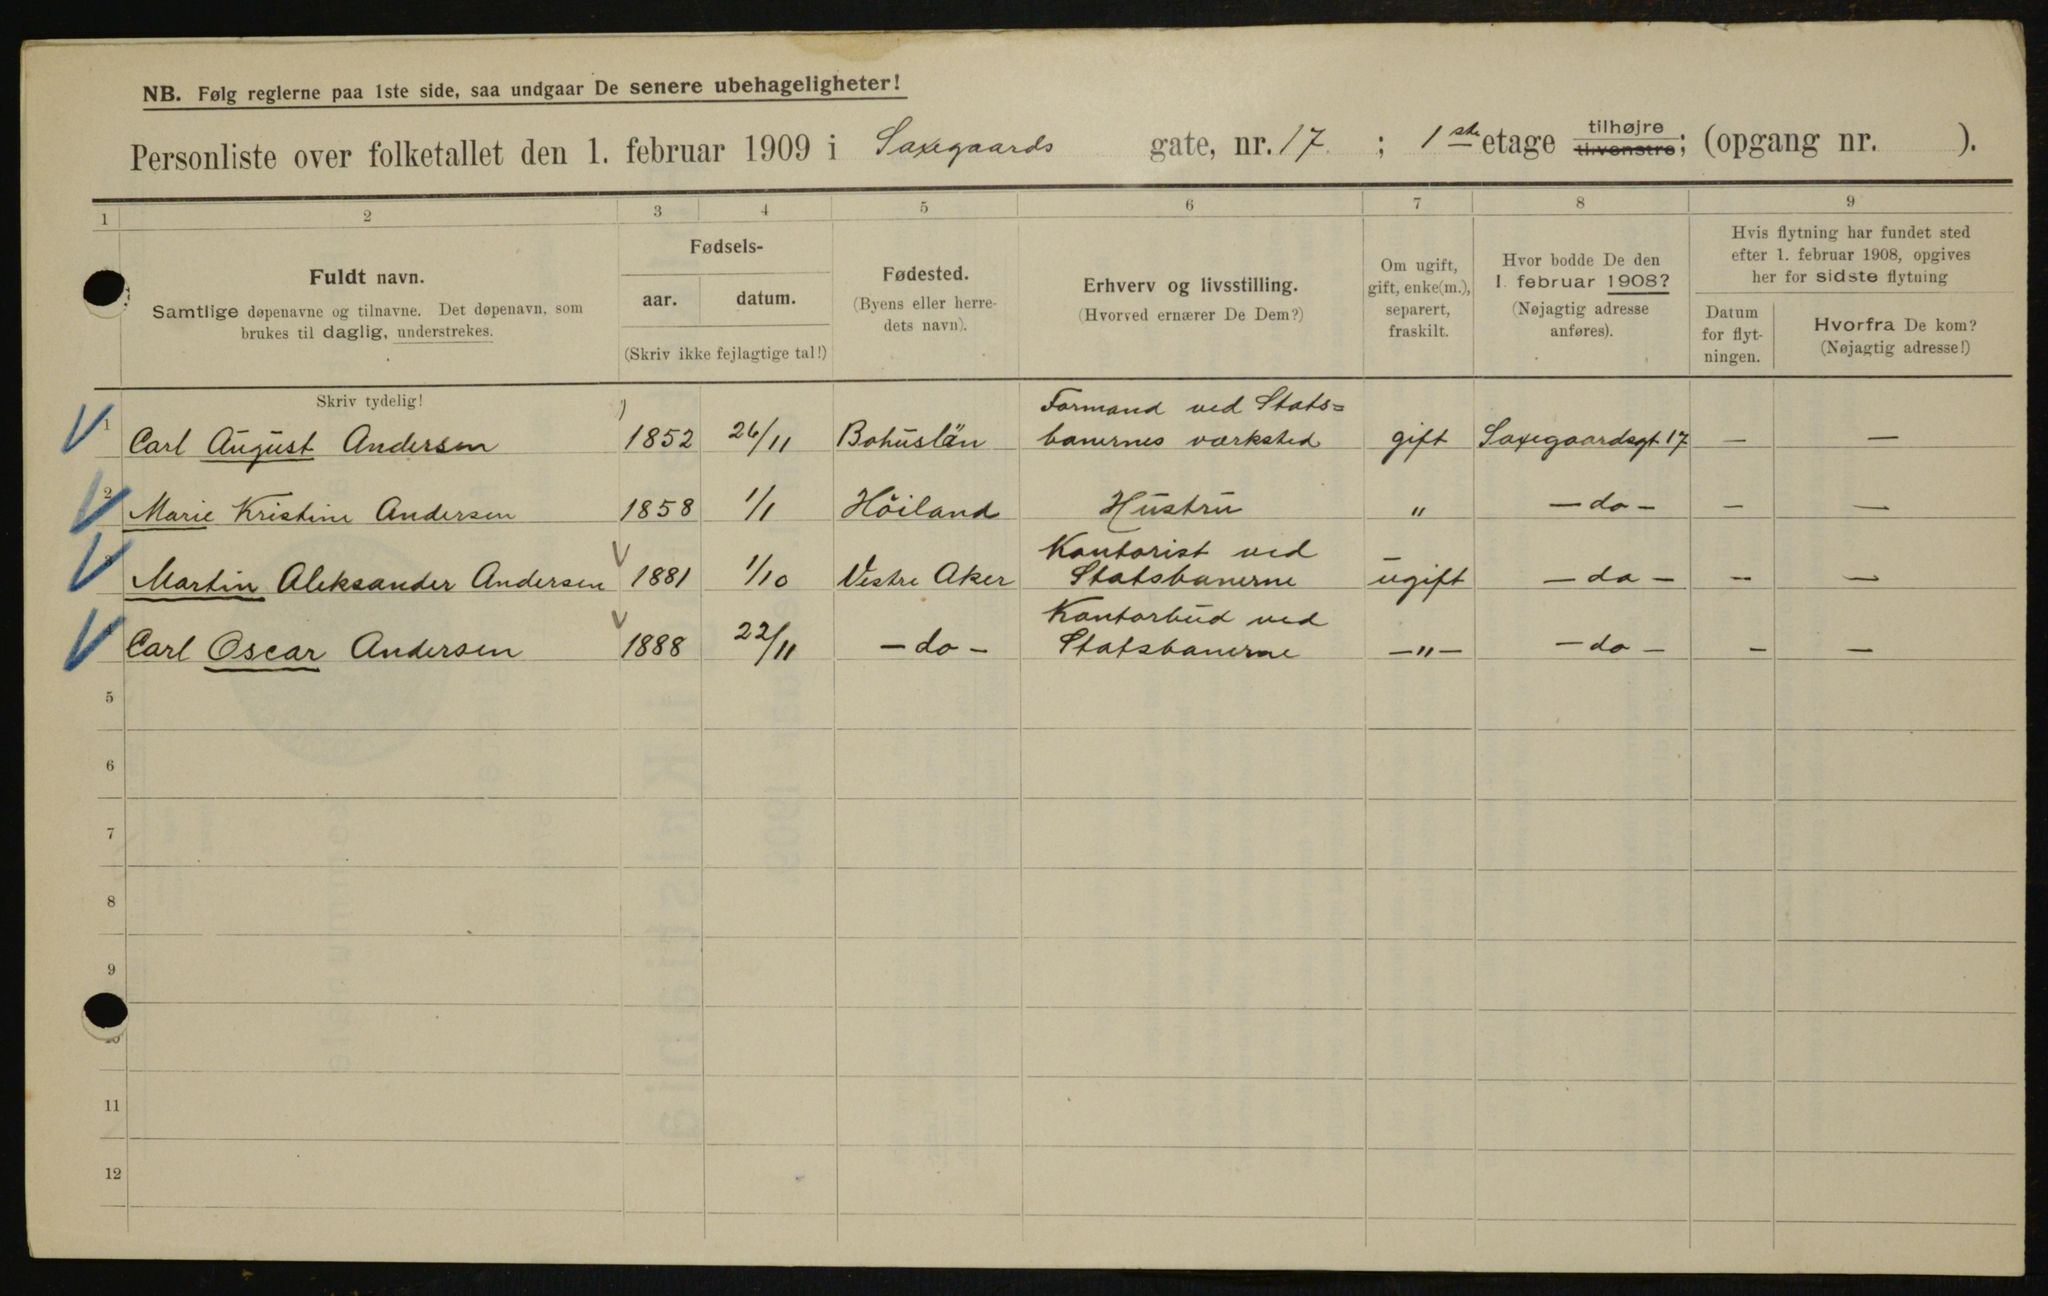 NB. Følg reglerne paa 1ste side, saa undgaar De senere ubehageligheter!
Personliste over folketallet den 1. februar 1909 i Saxegaards gate, nr. 17 ; 1ste etage tilhøjre tilvenstre; (opgang nr. ).
1 2 3 4 5 6 7 8 9
Fuldt navn.
Samtlige døpenavne og tilnavne. Det døpenavn, som
brukes til daglig, understrekes.
Skriv tydelig!
Fødsels-
aar. datum.
(Skriv ikke fejlagtige tal!)
Fødested.
(Byens eller herre-
dets navn).
Erhverv og livsstilling.
(Hvorved ernærer De Dem?)
Om ugift,
gift, enke(m.),
separert,
fraskilt.
Hvor bodde De den
1. februar 1908?
(Nøjagtig adresse
anføres).
Hvis flytning har fundet sted
efter 1. februar 1908, opgives
her for sidste flytning
Datum
for flyt-
ningen.
Hvorfra De kom?
(Nøjagtig adresse!)
Formand ved Stats=
1 Carl August Andersen 1852 26/11 Bohuslän banernes værksted gift Saxegaardsgt 17 — —
2 Marie Kristine Andersen 1858 1/1 Höiland Hustru " — do — — —
Kontorist ved
3 Martin Aleksander Andersen 1881 1/10 Vestre Aker Statsbanerne ugift — do — — —
Kontorbud ved
4 Carl Oscar Andersen 1888 22/11 — do — Statsbanerne — " — — do — — —
5
6
7
8
9
10
11
12